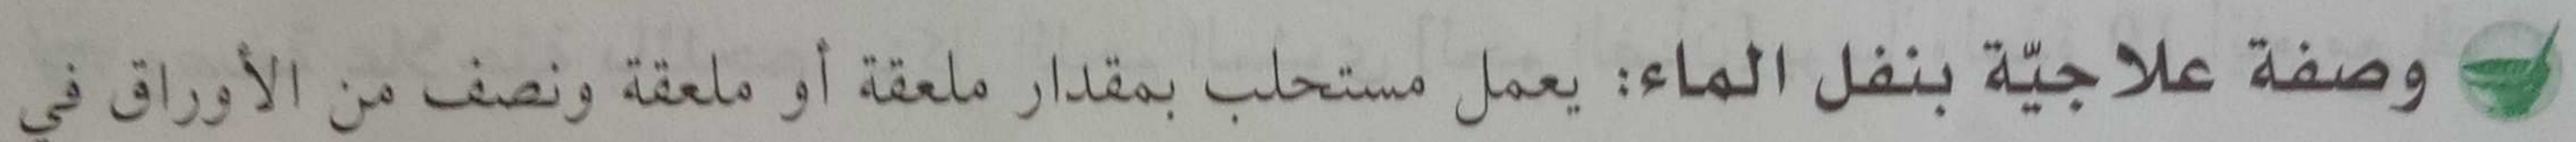 وصفة علاجيّة بنفل الماء: يعمل مستحلب بمقدار ملعقة أو ملعقة ونصف من الأوراق في